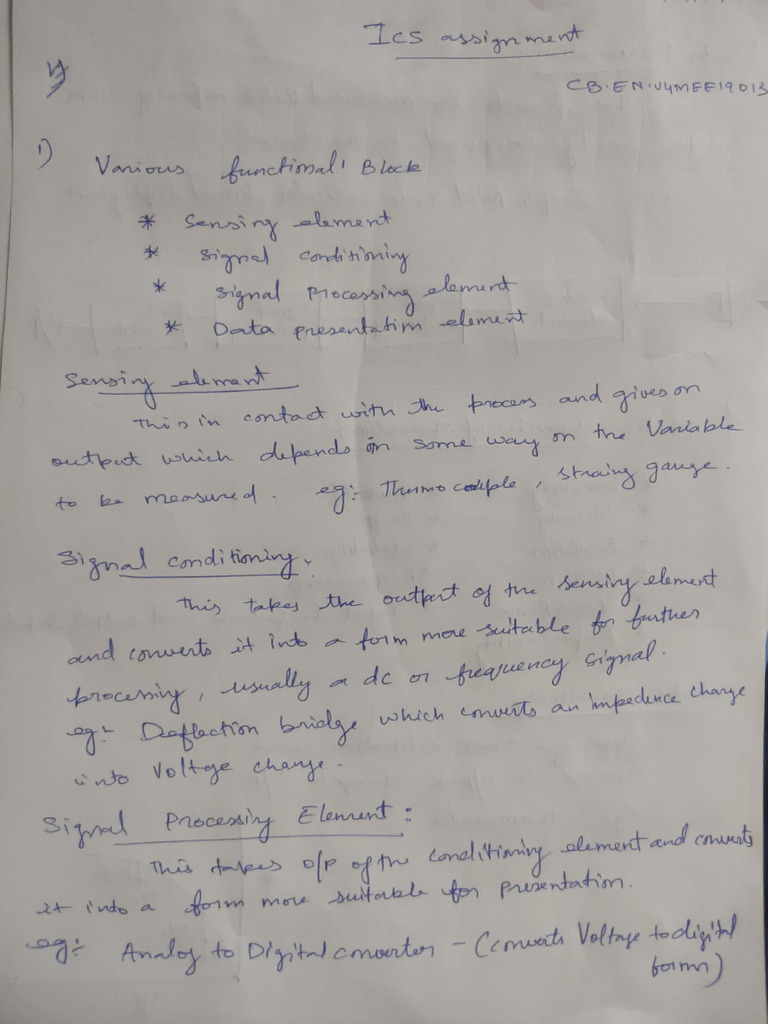 Ics assignment
CB.EN.U4MEE19013
1) Various functional Block
* Sensing element
* Signal conditioning
* Signal Processing element
* Data presentation element
Sensing element
This in contact with the process and gives on
output which depends in some way on the Variable
to be measured. eg:- Thermocouple, straing gauge.
Signal conditioning:
This takes the output of the sensing element
and converts it into a form more suitable for further
processing, usually a dc or frequency signal.
eg:- Deflection bridge which converts an impedence change
into Voltge change.
Signal Processing Element:
This takes o/p of the conditioning element and converts
it into a form more suitable for presentation.
eg:- Analog to Digital converter - (converts Voltage to digital
form)